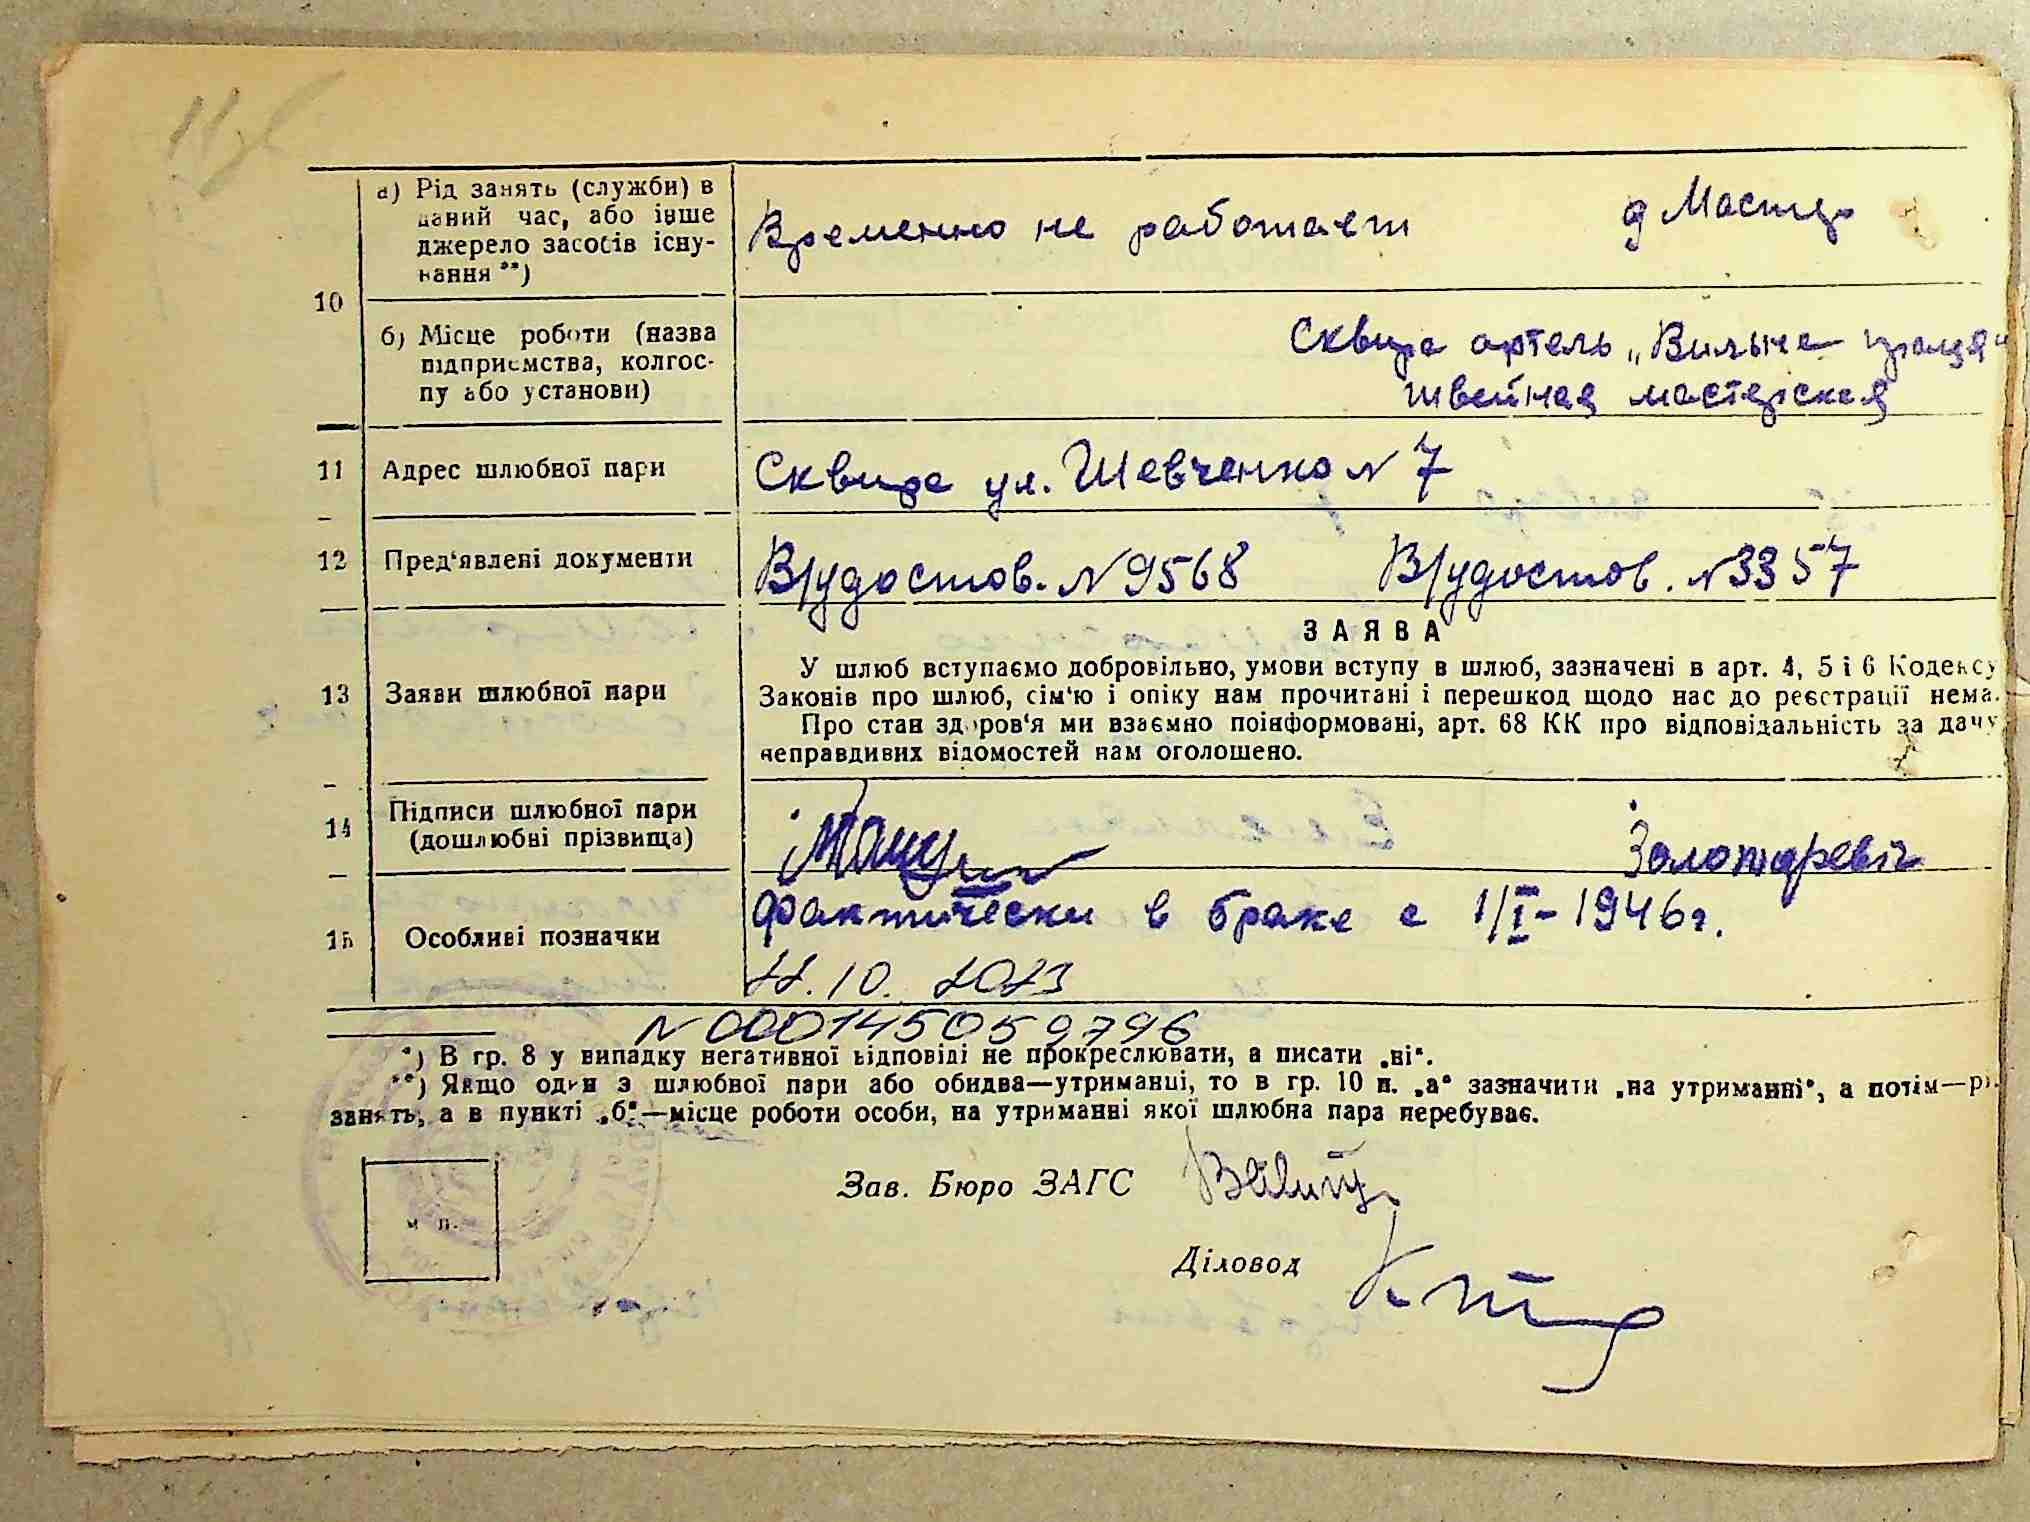 10
а) Рід занять (служби) в
даний час, або інше
джерело засобів існу-
вання **)
Временно не работает
б) Місце роботи (назва
підприємства, колгос-
пу або установи)
Сквира артель „Вильна праця“
швейная мастерская
11 Адрес шлюбної пари
Сквира ул. Шевченко N 7
12 Пред‘явлені документи
В/удостов. N 9568 В/удостов. N 3357
ЗАЯВА
13 Заяви шлюбної пари
У шлюб вступаємо добровільно, умови вступу в шлюб, зазначені в арт. 4, 5 і 6 Кодексу
Законів про шлюб, сім‘ю і опіку нам прочитані і перешкод щодо нас до реєстрації нема.
Про стан здоров‘я ми взаємно поінформовані, арт. 68 КК про відповідальність за дачу
неправдивих відомостей нам оголошено.
14 Підписи шлюбної пари
(дошлюбні прізвища)
Золотаревіч
15 Особливі позначки
фактически в браке с 1/I - 1946 г.
N 00014505 9796
*) В гр. 8 у випадку негативної відповіді не прокреслювати, а писати „ні“.
**) Якщо один з шлюбної пари або обидва—утриманці, то в гр. 10 п. „а“ зазначити „на утриманні“, а потім—рі
занять, а в пункті „б“—місце роботи особи, на утриманні якої шлюбна пара перебуває.
м п.
Зав. Бюро ЗАГС
Діловод